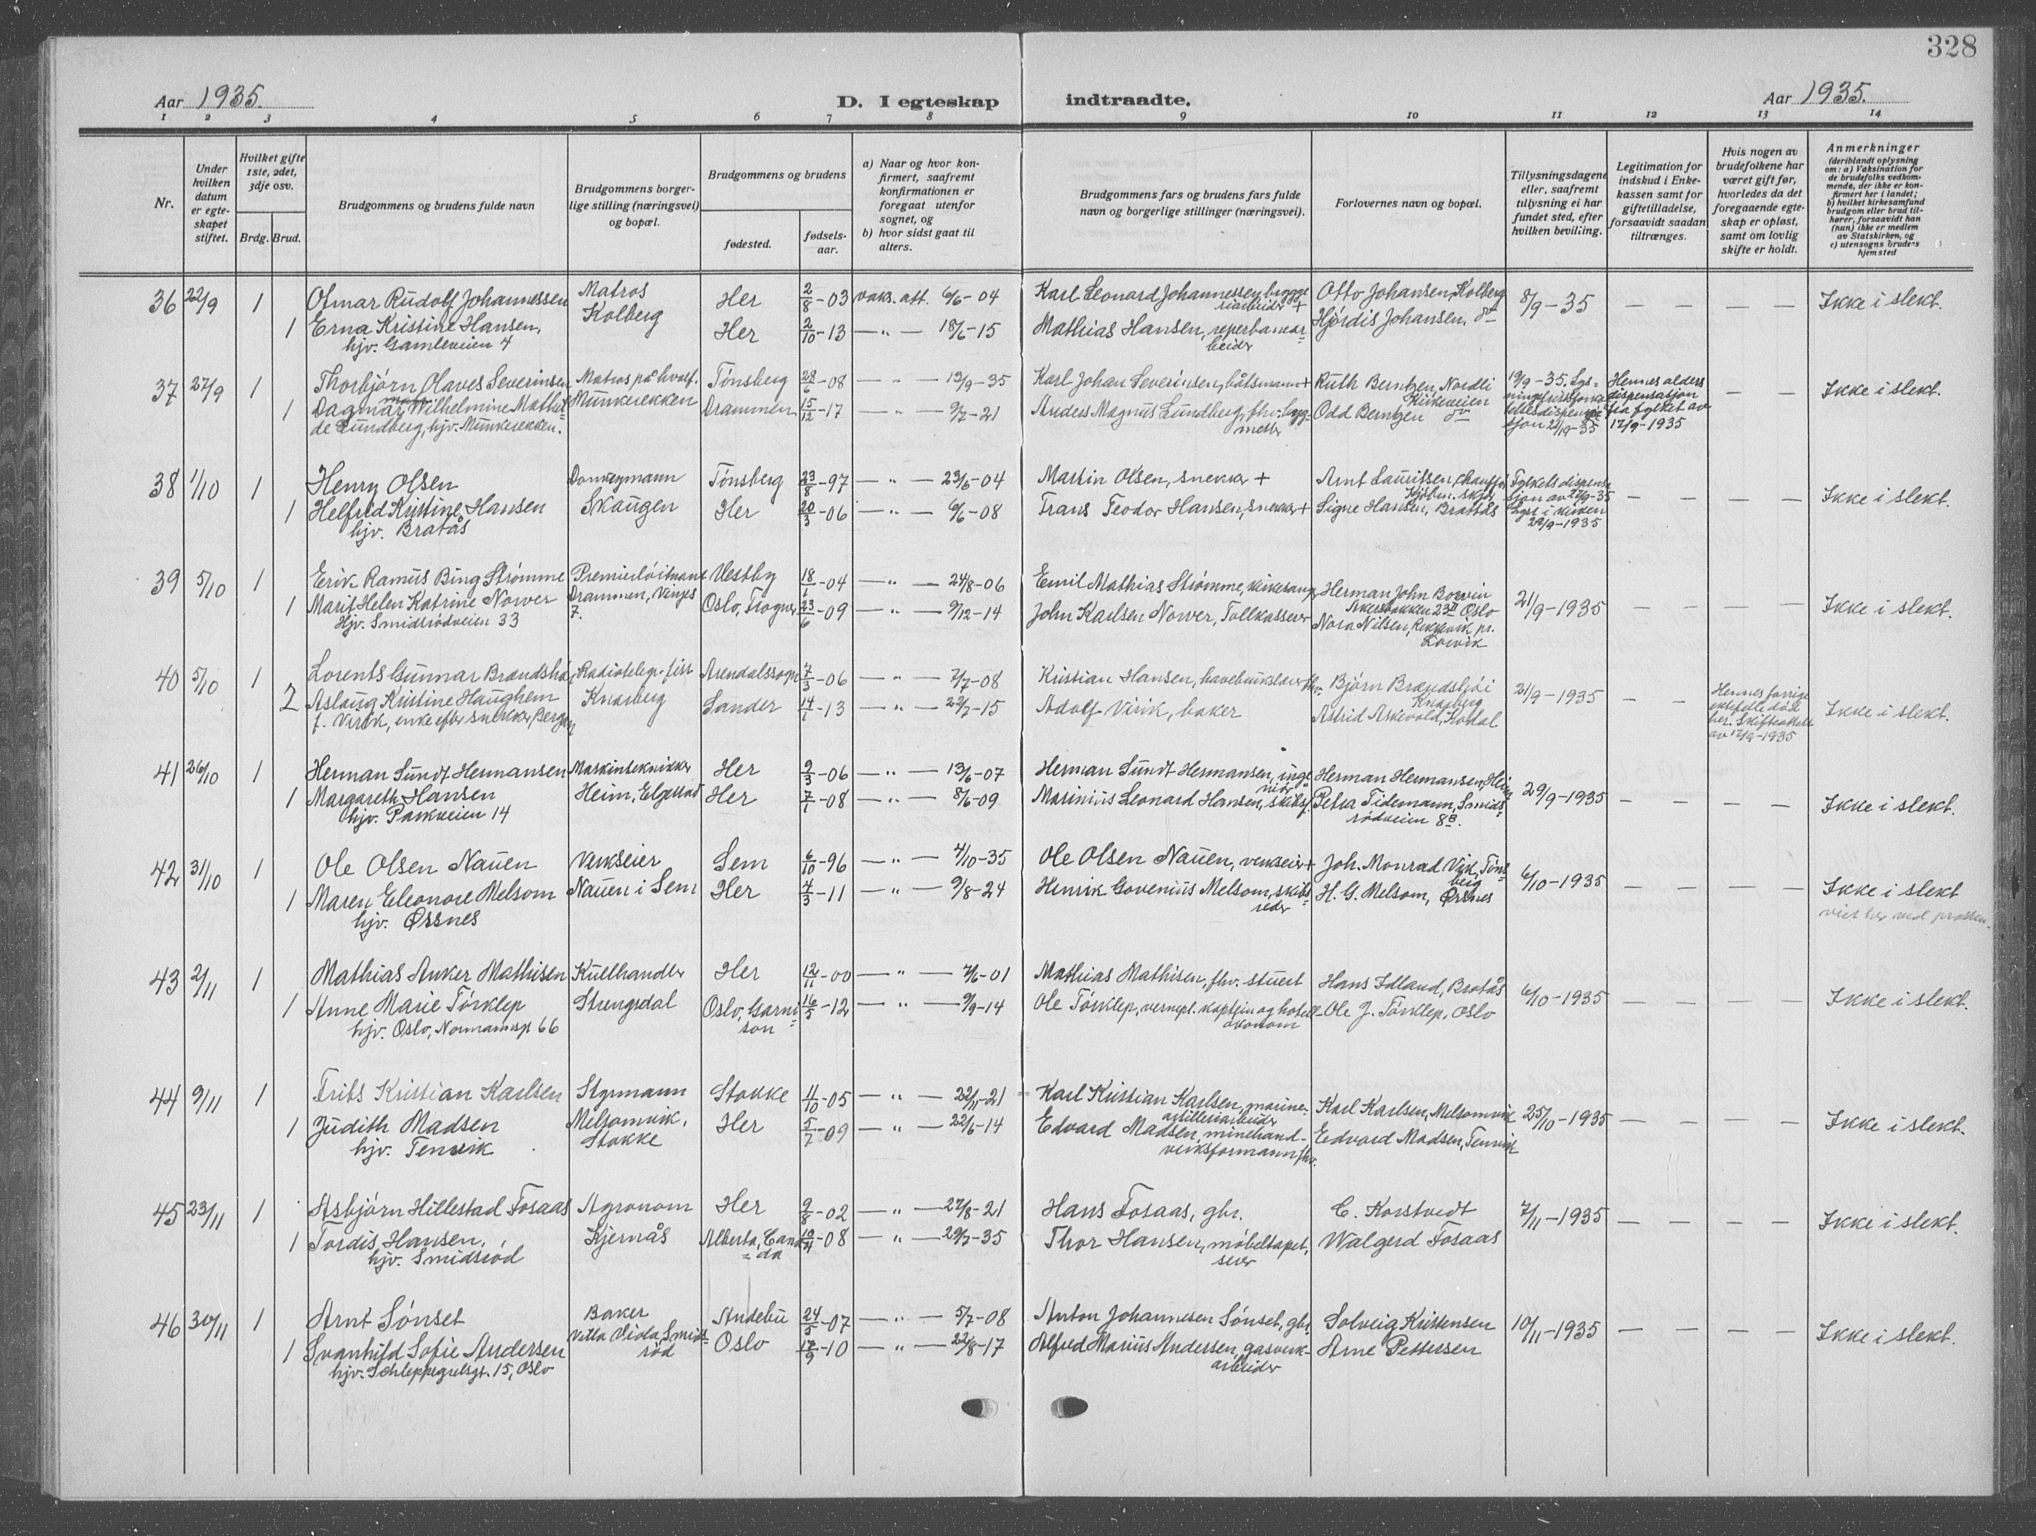 328
Aar 1935.
D. I egteskap indtraadte.
Aar 1935.
1 2 3 4 5 6 7 8 9 10 11 12 13 14
Nr.
Under hvilken datum er egteskapet stiftet.
Hvilket gifte 1ste, 2det, 3dje osv.
Brdg. Brud.
Brudgommens og brudens fulde navn
Brudgommens borgerlige stilling (næringsvei) og bopæl.
Brudgommens og brudens
fødested.
fødselsaar.
a) Naar og hvor konfirmert, saafremt konfirmationen er foregaat utenfor sognet, og
b) hvor sidst gaat til alters.
Brudgommens fars og brudens fars fulde navn og borgerlige stillinger (næringsvei).
Forlovernes navn og bopæl.
Tillysningsdagene eller, saafremt tillysning ei har fundet sted, efter hvilken bevilling.
Legitimation for indskud i Enkekassen samt for giftetilladelse, forsaavidt saadan tiltrænges.
Hvis nogen av brudefolkene har været gift før, hvorledes da det foregaaende egteskap er opløst, samt om lovlig skifte er holdt.
Anmerkninger
(deriblandt oplysning om: a) Vaksination for de brudefolks vedkommende, der ikke er konfirmert her i landet; b) hvilket kirkesamfund brudgom eller brud tilhører, forsaavidt han (hun) ikke er medlem av Statskirken, og c) utensogns brudens hjemsted
36 22/9 1 Olmar Rudolf Johannessen Matros Kolberg Her 2/8-03 vaks. att. 6/6-04 Karl Leonard Johannessen, bryggeriarbeider + Otto Johansen, Kolberg 8/9-35 — — — Ikke i slekt.
1 Erna Kristine Hansen, hjv. Gamleveien 4 Her 2/10-13 —"— 18/6-15 Mathias Hansen, reperbanearbeider Hjørdis Johansen, do
37 27/9 1 Thorbjørn Olaves Severinsen Matros på hvalf. Munkerekken Tønsberg 28/6-08 —"— 13/9-35 Karl Johan Severinsen, båtsmann + Ruth Berntzen, Nordli Kirkeveien 19/9-35. Hennes aldersdispensasjon fra fylket av 17/9-1935 — Ikke i slekt.
1 Dagmar Wilhelmine Mathilde Lundberg, hjv. Munkerekken. Drammen 15/12-17 —"— 9/7-21 Anders Magnus Lundberg, fhv. byggmester Odd Berntzen do
38 1/10 1 Henry Olsen Donkeymann Skaugen Tønsberg 23/8-97 —"— 23/6-04 Martin Olsen, snekker + Arnt Lauritsen, Fylkets dispensasjon av 27/9-35 Lyst i kirken 29/9-1935 — — — Ikke i slekt.
1 Helfred Kristine Hansen hjv. Bratås Her 20/3-06 —"— 6/6-08 Frans Teodor Hansen, snekker + Signe Hansen, Bratås
39 5/10 1 Erik Ramus Bing Strømme Premierløitnant Drammen, Vinjes 7. Vestby 18/1-04 —"— 24/8-06 Emil Mathias Strømme, kirkesanger Herman John Bowin Akersbakken 23II Oslo 21/9-1935 — — — Ikke i slekt.
1 Marit Helen Katrine Nower Hjv. Smidsrødveien 33 Oslo, Frogner 23/6-09 —"— 9/12-14 John Karlsen Nower, Tollkasserer Nora Nilsen, Rekkevik pr. Larvik
40 5/10 1 Lorents Gunnar Brændshøi Radiotelegrafist Knarberg Arendalssogn 7/3-06 —"— 7/7-08 Kristian Hansen, havebrukslærer fhv. Bjørn Brændshøi Knarberg 21/9-1935 — — Hennes forrige ektefelle død her. Skifteattest av 17/9-1935 Ikke i slekt.
2 Aslaug Kristine Haughem f. Virik, enke efter snekker, Bergan Sander 14/1-13 —"— 29/7-15 Adolf Virik, baker Astrid Askevold, Kodal
41 26/10 1 Herman Sundt Hermansen Maskintekniker Heim, Elgestad Her 9/3-06 —"— 13/6-07 Herman Sundt Hermansen, ingeniør Herman Hermansen, Heim 29/9-1935 — — — Ikke i slekt.
1 Margareth Hansen hjv. Parkveien 14 Her 7/1-08 —"— 8/6-09 Marinius Leonard Hansen, skibsf. Petra Tidemann, Smidsrødveien 8B.
42 31/10 1 Ole Olsen Nauen Verkseier Nauen i Sem Sem 6/10-96 —"— 4/10-35 Ole Olsen Nauen, verkseier + Joh. Monrad Vik, Tønsberg 6/10-1935 — — — Ikke i slekt
1 Maren Eleonore Melsom hjv. Ørsnes Her 4/3-11 —"— 9/8-24 Henrik Govenius Melsom, skibsreder H. G. Melsom, Ørsnes viet her ved prosten.
43 2/11 1 Mathias Anker Mathisen Kullhandler Strengsdal Her 12/11-00 —"— 7/6-01 Mathias Mathisen, fhv. stuert Hans Idland, Bratås 6/10-1935 — — — Ikke i slekt.
1 Anne Marie Tørklep hjv. Oslo, Normannsgt 66 Oslo, Garnison 16/5-12 —"— 9/9-14 Ole Tørklep, vernepl. kaptein og hotelløkonom Ole J. Tørklep, Oslo
44 9/11 1 Frits Kristian Karlsen Styrmann Melsomvik, Stokke Stokke 11/10-05 —"— 22/11-21 Karl Kristian Karlsen, marineartilleriarbeider Karl Karlsen, Melsomvik 25/10-1935 — — — Ikke i slekt.
1 Judith Madsen hjv. Tenvik Her 5/7-09 —"— 22/6-14 Edvard Madsen, minehandverksformann fhv. Edvard Madsen, Tenvik
45 23/11 1 Asbjørn Hillestad Fosaas Agronom Kjernås Her 9/8-02 —"— 27/8-21 Hans Fosaas, gbr. C. Korstvedt 7/11-1935 — — — Ikke i slekt.
1 Tordis Hansen, hjv. Smidsrød Alberta, Canada 10/4-08 —"— 29/7-35 Thor Hansen, møbeltapetserer Walgerd Fosaas
46 30/11 1 Arnt Sønset Baker Villa Viola, Smidsrød Andebu 24/5-07 —"— 5/7-08 Anton Johannesen Sønset, gbr. Solveig Kristensen 10/11-1935 — — — Ikke i slekt.
1 Svanhild Sofie Andersen hjv. Schleppegrelsgt. 15, Oslo Oslo 17/9-10 —"— 22/8-17 Alfred Marius Andersen, gasverkarbeider Arne Pettersen